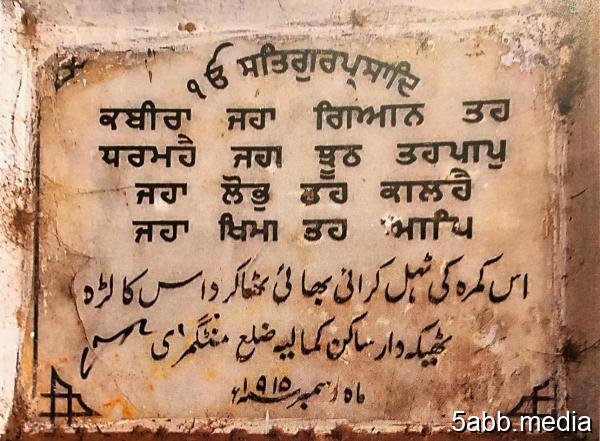 ੧ਓ ਸਤਿਗੁਰਪ੍ਰਸਾਦਿ
ਕਬੀਰਾ ਜਹਾ ਗਿਆਨ ਤਹ
ਧਰਮਹੈ ਜਹਾ ਝੂਠ ਤਹਪਾਪੁ
ਜਹਾ ਲੋਭੁ ਤਹ ਕਾਲਹੈ
ਜਹਾ ਖਿਮਾ ਤਹ ਆਪਿ
اس کمرہ کی ٹہل کرائی بھائی ٹھاکر داس کالڑہ
ٹھیکہ دار ساکن کمالیہ ضلع منٹگمری
ماہ دسمبر سنہ ۱۹۱۵ء
5abb.media